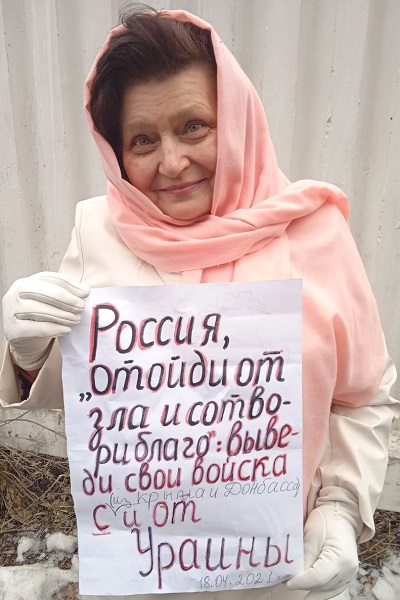 Россия,
"отойди от
зла и сотво-
ри благо": выве-
ди свои войска
(из Крыма и Донбасса)
с и от
Ураины
18.04.2021